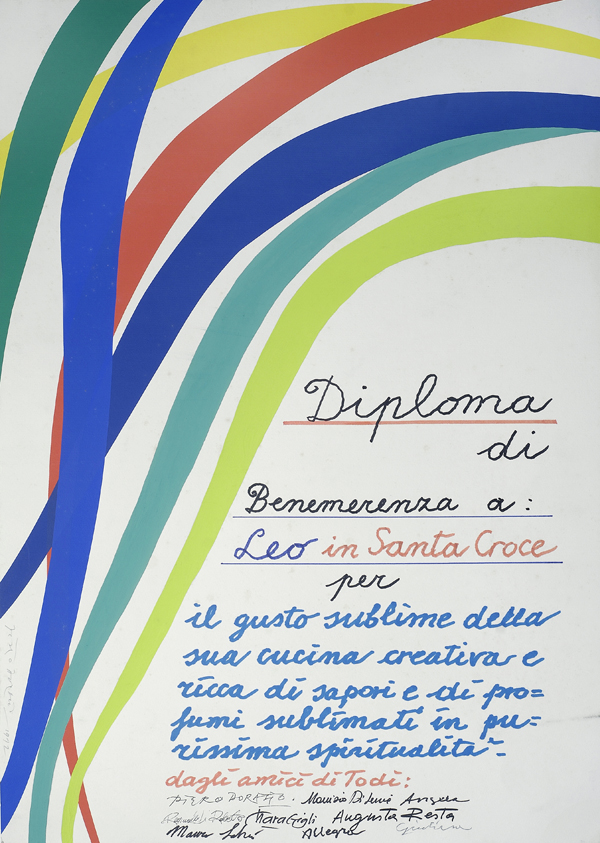 Diploma
di
Benemerenza a:
Leo in Santa Croce
per
il gusto sublime della
sua cucina creativa e
ricca di sapori e di pro=
fumi sublimati in pu=
rissima spiritualità-
dagli amici di Todi:
PIERO DORAZIO. Maurizio Angela
Chiara Gigli Augusta Resta
Allegro Giuliana